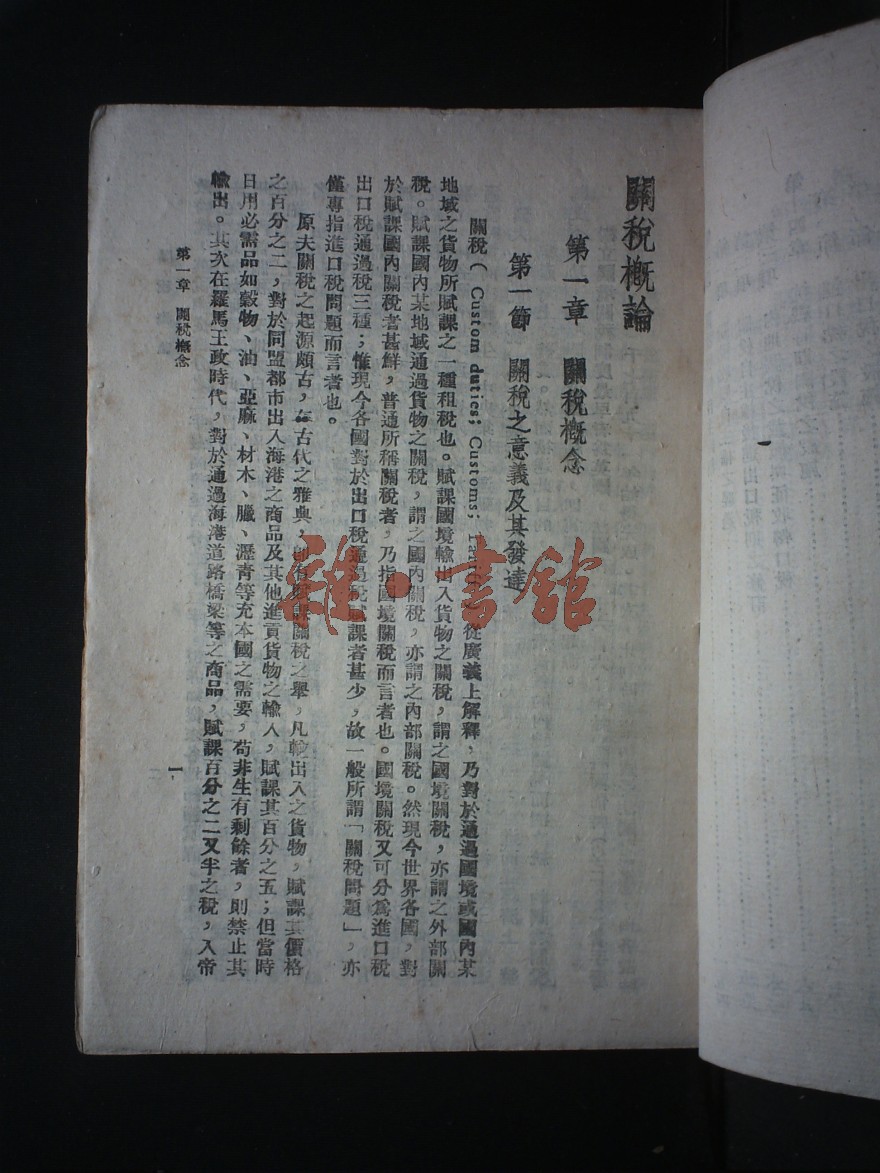 關稅概論
第一章　關稅概念
第一節　關稅之意義及其發達
關稅（Custom duties; Customs; 從廣義上解釋，乃對於通過國境或國內某
地域之貨物所賦課之一種租稅也。賦課國境輸出入貨物之關稅，謂之國境關稅，亦謂之外部關
稅。賦課國內某地域通過貨物之關稅，謂之國內關稅，亦謂之內部關稅。然現今世界各國，對
於賦課國內關稅者甚鮮，普通所稱關稅者，乃指國境關稅而言者也。國境關稅又可分為進口稅
出口稅通過稅三種；惟現今各國對於出口稅通過稅賦課者甚少，故一般所謂「關稅問題」，亦
僅專指進口稅問題而言者也。
原夫關稅之起源頗古，在古代之雅典，即有賦課關稅之舉，凡輸出入之貨物，賦課其價格
之百分之二，對於同盟都市出入海港之商品及其他進貢貨物之輸入，賦課其百分之五；但當時
日用必需品如穀物、油、亞麻、材木、臘、瀝青等充本國之需要，苟非生有剩餘者，則禁止其
輸出。其次在羅馬王政時代，對於通過海港道路橋梁等之商品，賦課百分之二又半之稅，入帝
第一章　關稅概念
一
雜·書館